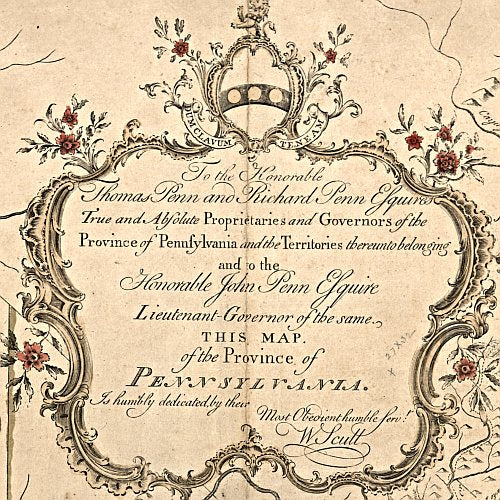 DUM CLAVUM TENEAM
To the Honorable
Thomas Penn and Richard Penn Eſquires
True and Abſolute Proprietaries and Governors of the
Province of Pennſylvania and the Territories thereunto belonging
and to the
Honorable John Penn Eſquire
Lieutenant-Governor of the same.
THIS MAP.
of the Province of
PENNSYLVANIA.
Is humbly dedicated, by their
Most Obedient humble Serv.t
W Scull